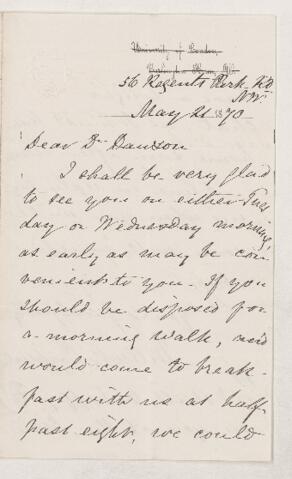 University of London
Burlington House, W.
56 Regents Park Rd
N.W.
May 21 1870
Dear Dr Dawson
I shall be very glad
to see you on either Tues
day or Wednesday morning,
as early as may be con-
venient to you. If you
should be disposed for
a morning walk, and
would come to break-
fast with us at half
past eight, we could